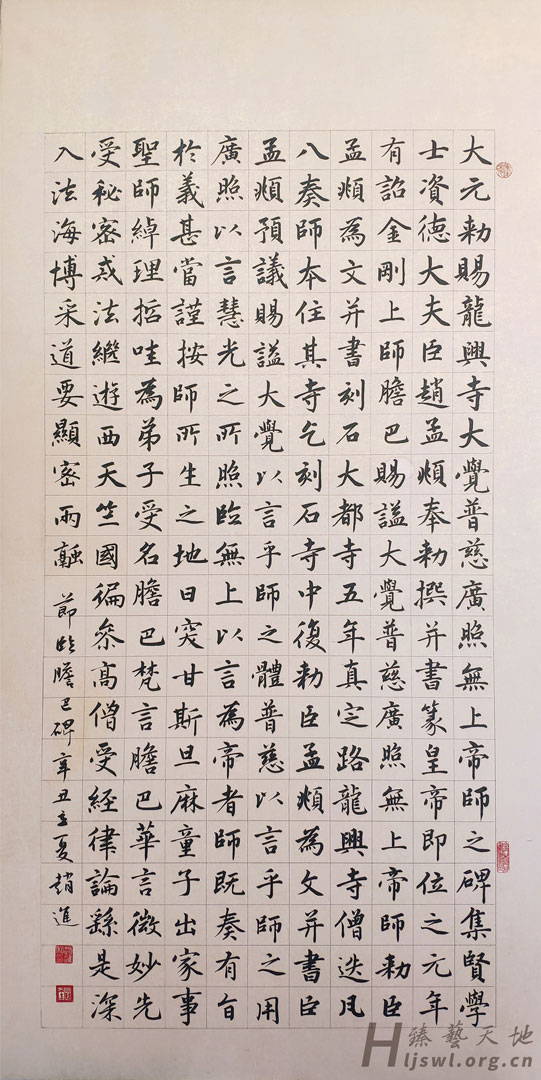 大元勅賜龍興寺大覺普慈廣照無上帝師之碑集賢學
士資德大夫臣趙孟頫奉勅撰并書篆皇帝即位之元年
有詔金剛上師膽巴賜謚大覺普慈廣照無上帝師勅臣
孟頫為文并書刻石大都寺五年真定路龍興寺僧迭凡
八奏師本住其寺乞刻石寺中復勅臣孟頫為文并書臣
孟頫預議賜謚大覺以言乎師之體普慈以言乎師之用
廣照以言慧光之所照臨無上以言為帝者師既奏有旨
於義甚當謹按師所生之地曰突甘斯旦麻童子出家事
聖師綽理哲哇為弟子受名膽巴梵言膽巴華言微妙先
受秘密戒法繼遊西天竺國徧參高僧受經律論繇是深
入法海博采道要顯密兩融 節臨膽巴碑辛丑立夏趙進
臻藝天地
Hljswl.org.cn